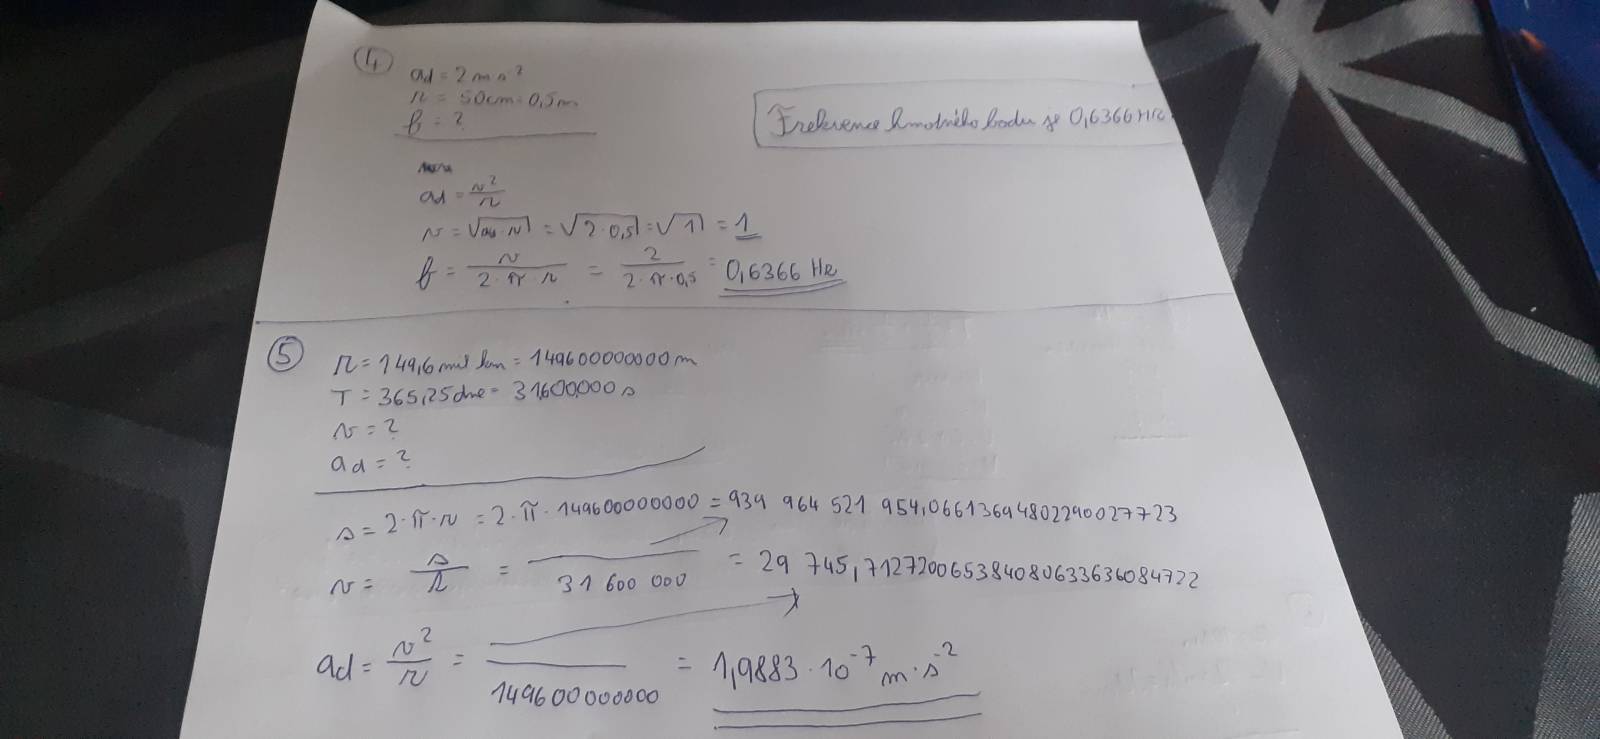 4
ad = 2 m s²
r = 50cm = 0,5m
f = ?
Frekvence hmotného bodu je 0,6366 Hz
ad = v²/r
v = √ad·r = √2·0,5 = √1 = 1
f = v/2·π·r = 2/2·π·0,5 = 0,6366 Hz
5
r = 149,6 mil km = 149600000000 m
T = 365,25 dne = 31600000 s
v = ?
ad = ?
s = 2·π·r = 2·π·149600000000 = 939 964 521 954,06613694802290027723
v = s/r = /31 600 000 = 29 745,71272006538408063363608​4722
ad = v²/r = /149600000000 = 1,9883·10⁻⁷ m·s⁻²